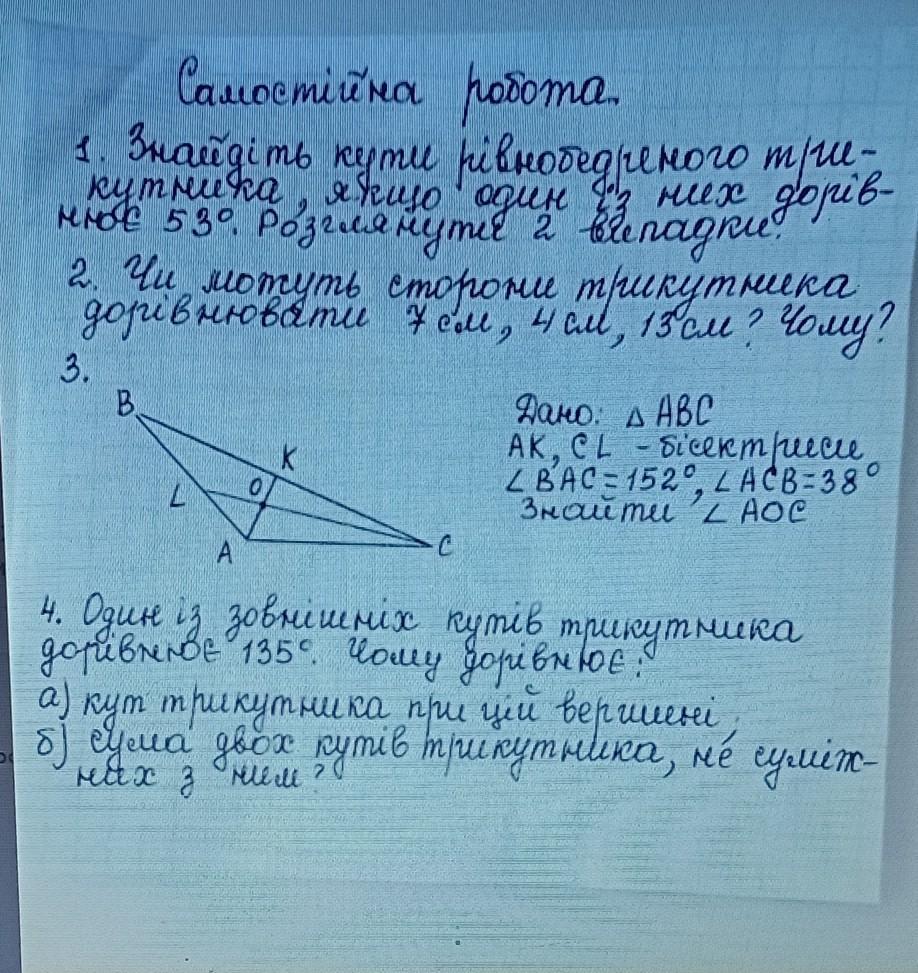 Самостійна робота.
1. Знайдіть кути рівнобедреного три-
кутника, якщо один із них дорів-
нює 53°. Розглянути 2 випадки.
2. Чи можуть сторони трикутника
дорівнювати 7 см, 4 см, 13 см? Чому?
3.
B
K
L
O
A
C
Дано: △ ABC
AK, CL - бісектриси
∠BAC=152°, ∠ACB=38°
Знайти ∠AOC
4. Один із зовнішніх кутів трикутника
дорівнює 135°. Чому дорівнює:
а) кут трикутника при цій вершині,
б) сума двох кутів трикутника, не суміж-
них з ним?